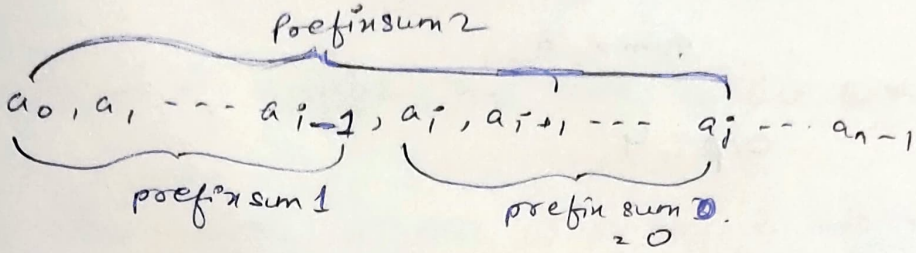 Prefixsum2
a₀, a₁ ---- a i-1, ai, ai+1 ---- aj --- an-1
prefixsum1 prefix sum 0.
= 0